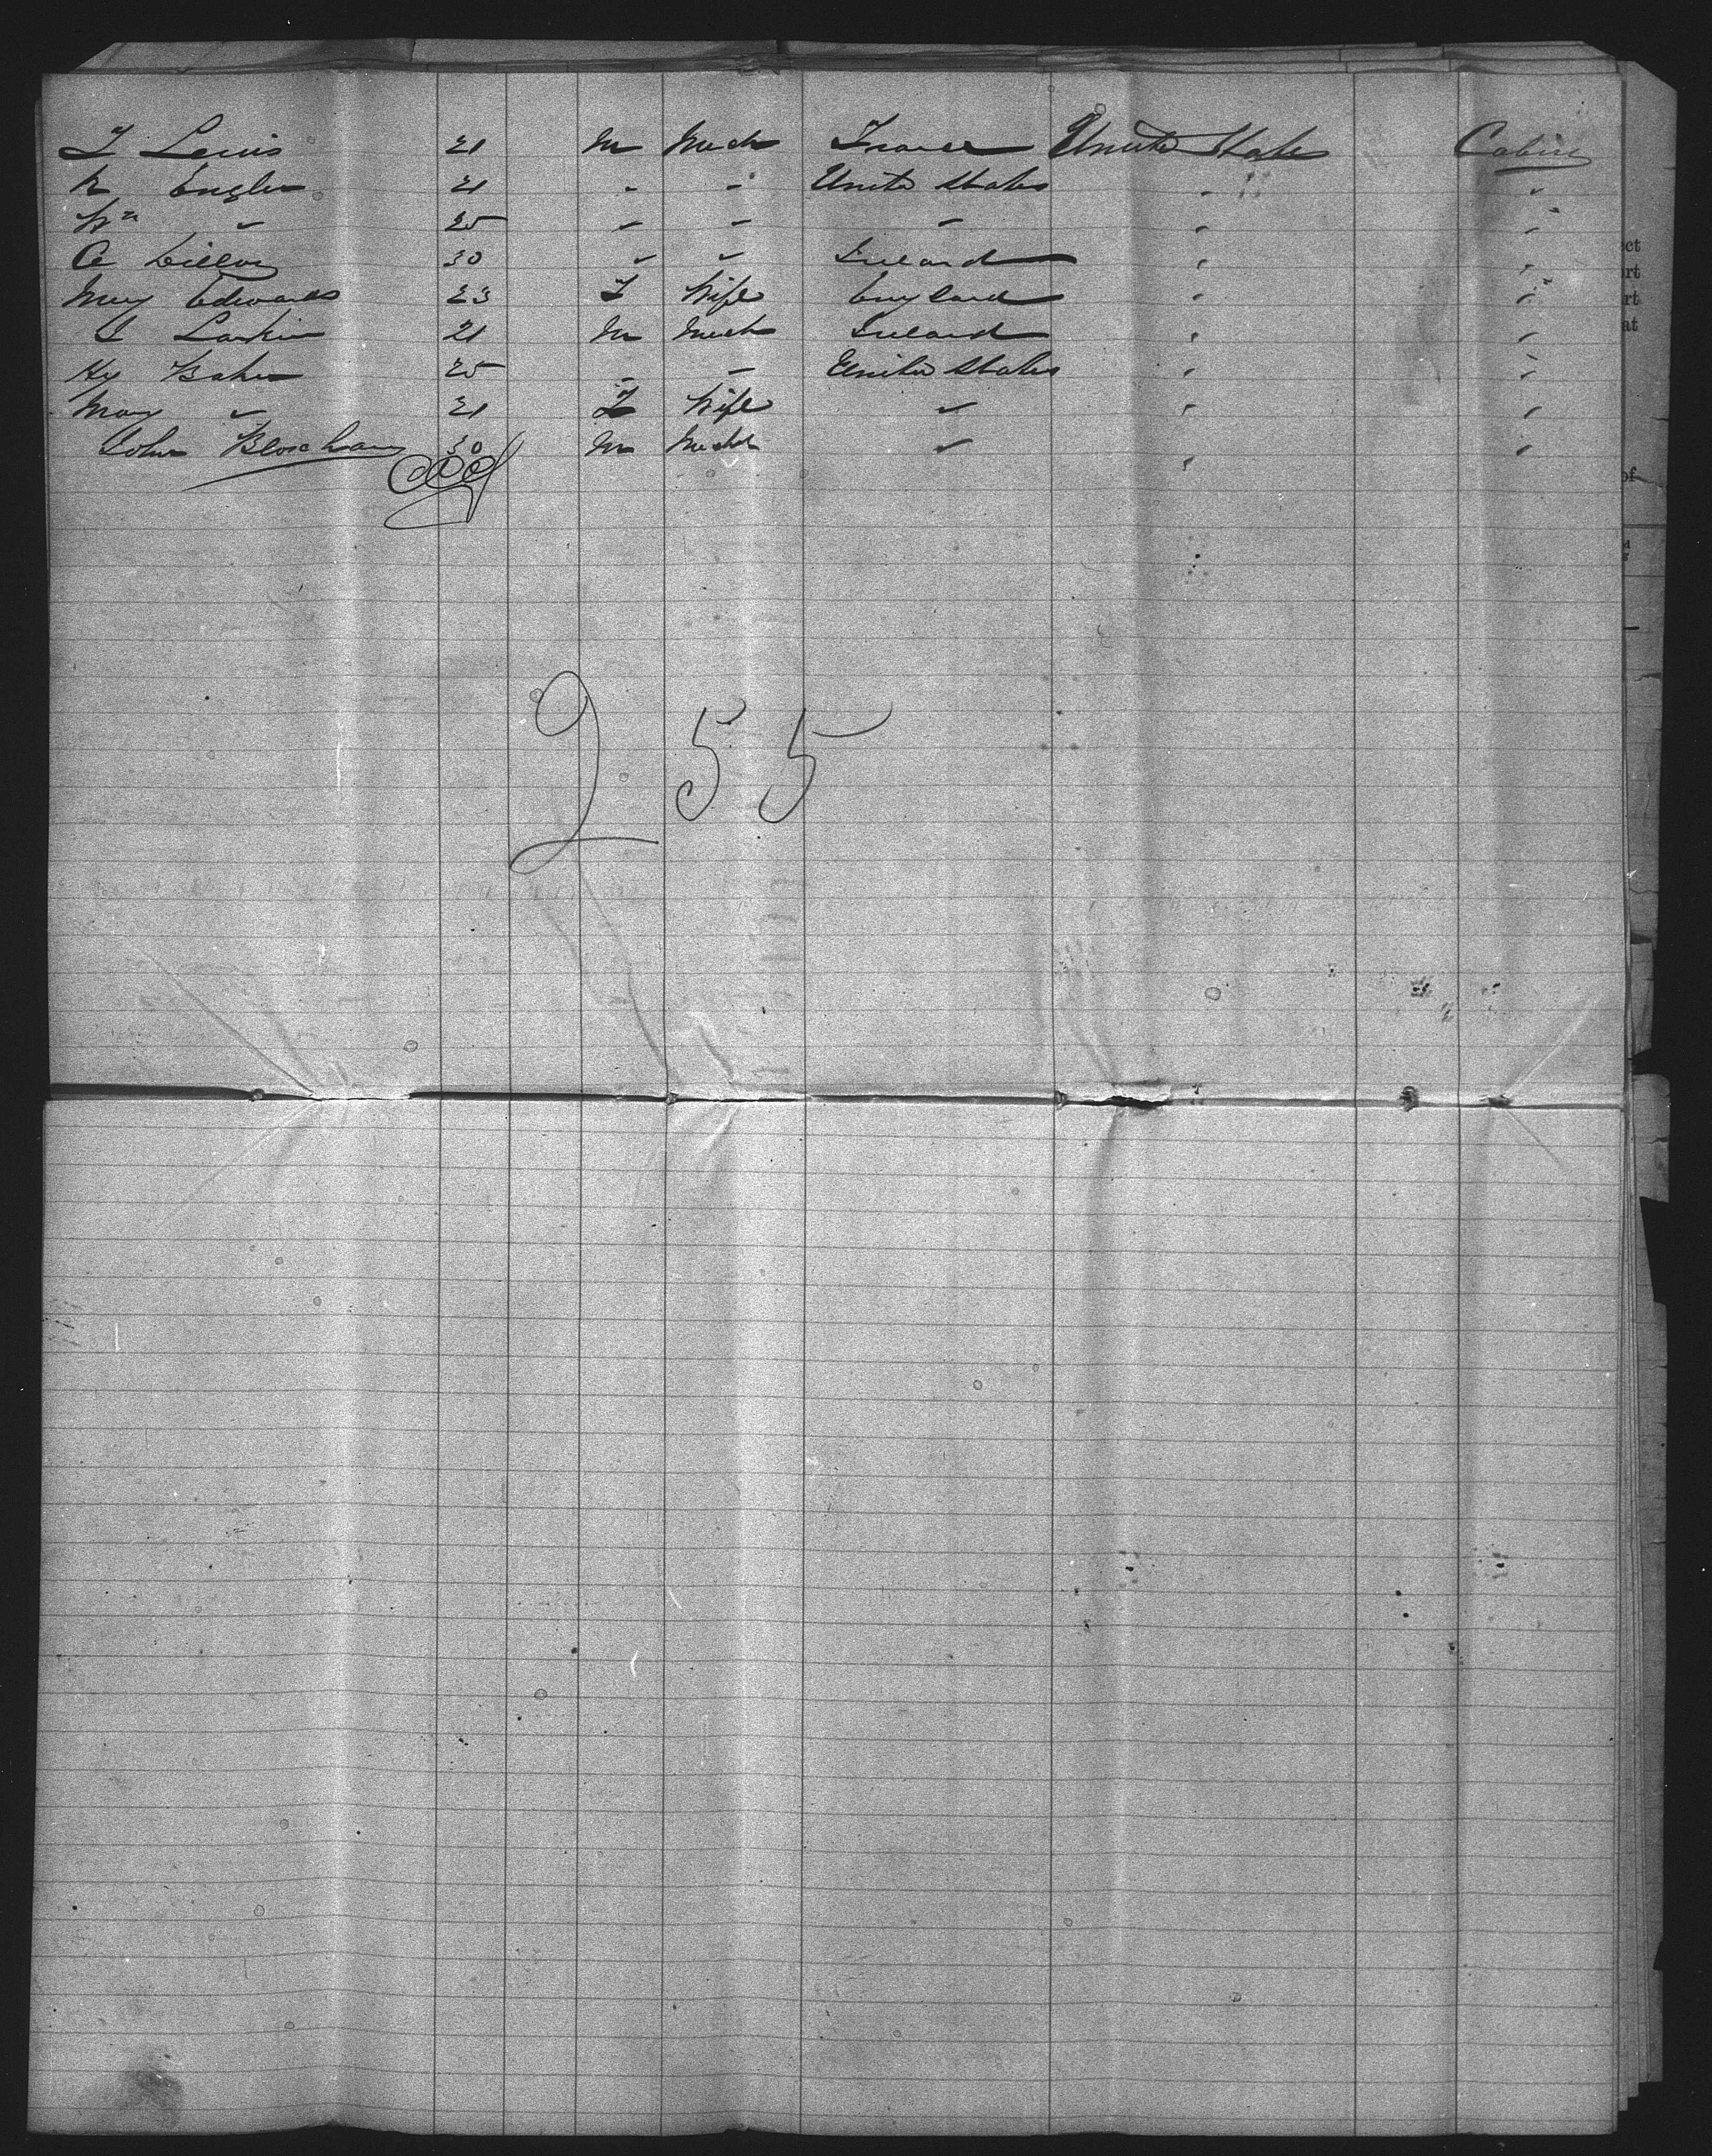 Lewis 21 M Mech France United States Cabin
Engler 21 " " United States " "
Wm " 25 " " " " "
Dillon 30 " " Ireland " "
Mary Edwards 23 F Wife England " "
Larkin 21 M Mech Ireland " "
Hy Baker 25 " " United States " "
Mary " 21 F Wife " " "
John Bloxham 30 M Mech " " "
255